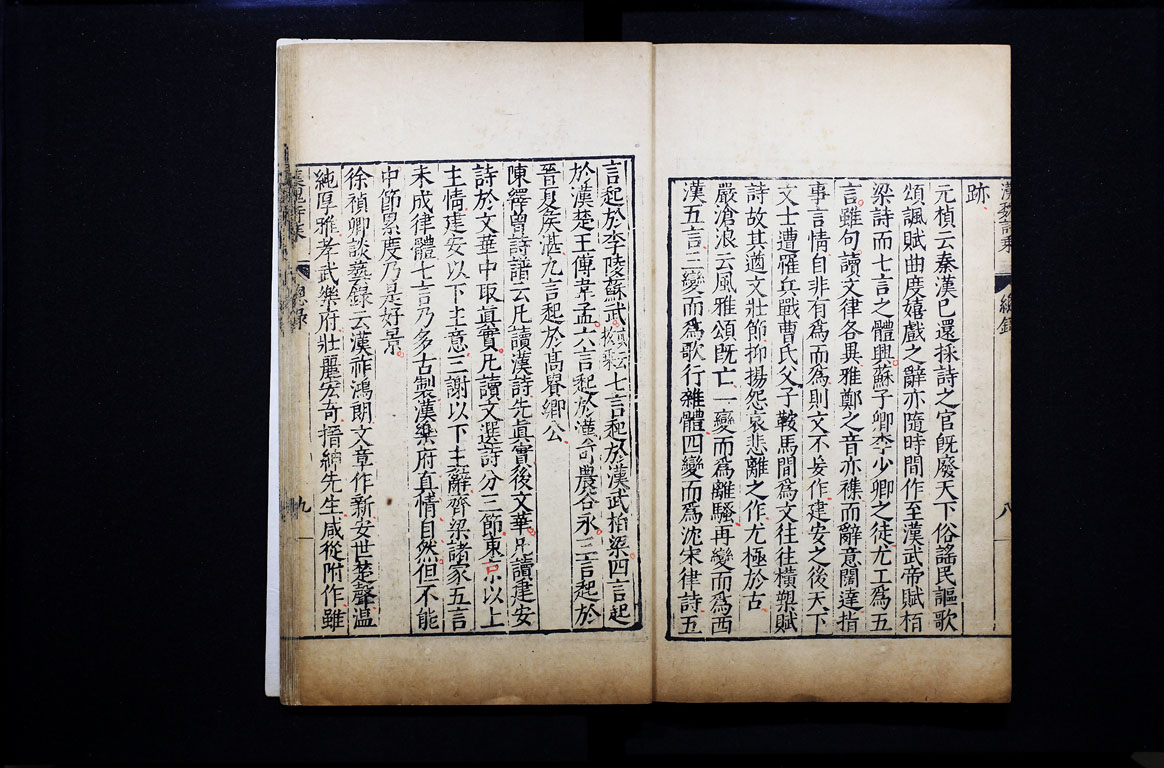 漢魏詩乘
總錄
八
跡
元楨云秦漢已還採詩之官旣廢天下俗謠民謳歌
頌諷賦曲度嬉戲之辭亦隨時間作至漢武帝賦栢
梁詩而七言之體興蘇子卿李少卿之徒尤工爲五
言雖句讀文律各異雅鄭之音亦襍而辭意闊達指
事言情自非有爲而爲則文不妄作建安之後天下
文士遭罹兵戰曹氏父子鞍馬間爲文往往橫槊賦
詩故其遒文壯節抑揚怨哀悲離之作尤極於古
嚴滄浪云風雅頌旣亡一變而爲離騷再變而爲西
漢五言三變而爲歌行雜體四變而爲沈宋律詩五
言起於李陵蘇武七言起於漢武栢梁四言起
於漢楚王傅韋孟六言起於漢司農谷永三言起於
晉夏矦湛九言起於高貴鄉公
陳繹曾詩譜云凡讀漢詩先眞實後文華凡讀建安
詩於文華中取眞實凡讀文選詩分三節東京以上
主情建安以下主意三謝以下主辭齊梁諸家五言
未成律體七言乃多古製漢樂府真情自然但不能
中節爾度乃是好景
徐禎卿談藝錄云漢祚鴻朗文章作新安世楚聲溫
純厚雅孝武樂府壯麗宏奇搢紳先生咸從附作雖
漢魏詩乘
總錄
九